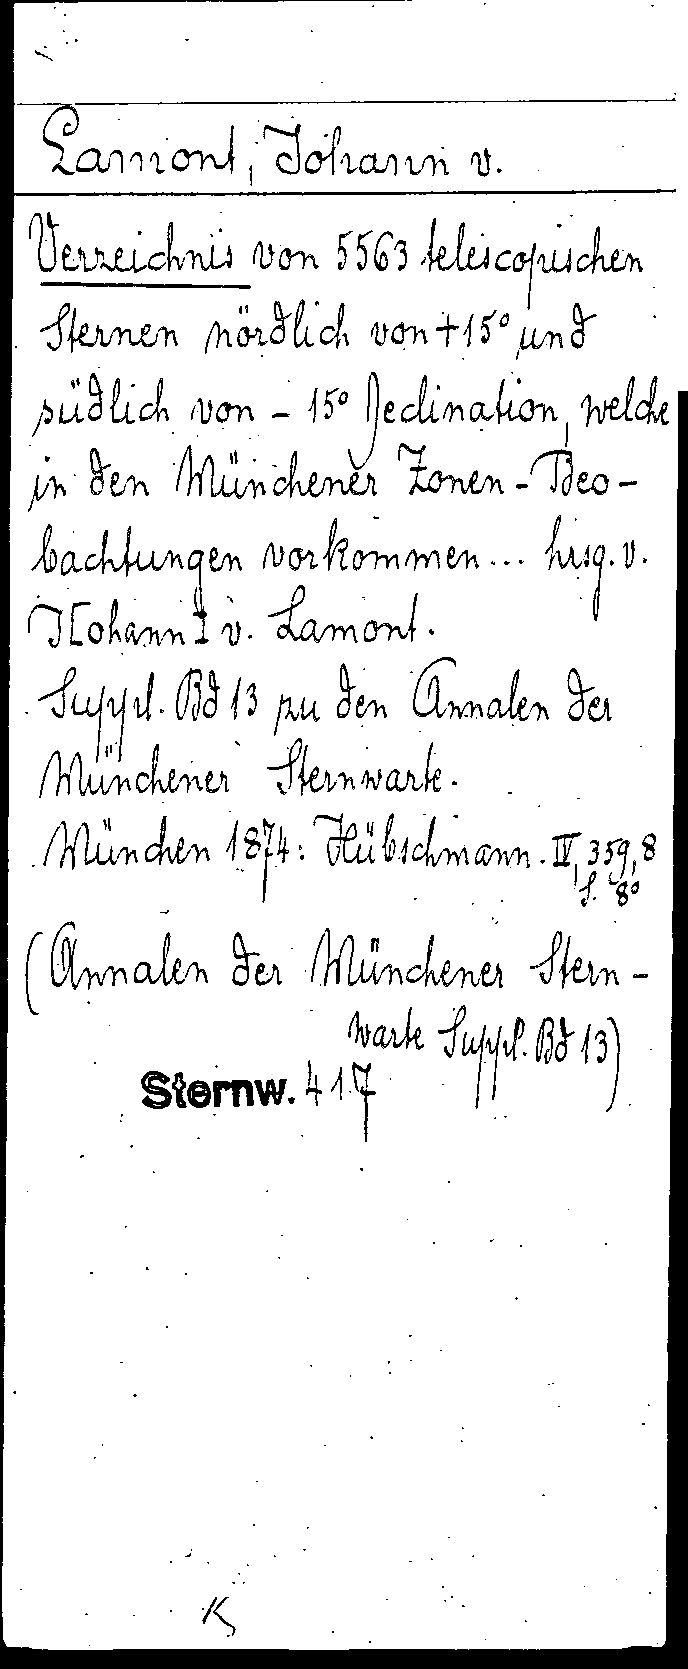 Lamont, Johann v.
Verzeichnis von 5563 telescopischen
Sternen nördlich von +15° und
südlich von - 15° Declination, welche
in den Münchener Zonen-Beo-
bachtungen vorkommen... hrsg. v.
J[ohann] v. Lamont.
Suppl. Bd 13 zu den Annalen der
Münchener Sternwarte.
München 1874: Hübschmann. IV, 359, 8
S. 8°
(Annalen der Münchener Stern-
warte Suppl. Bd 13)
Sternw. 417
K